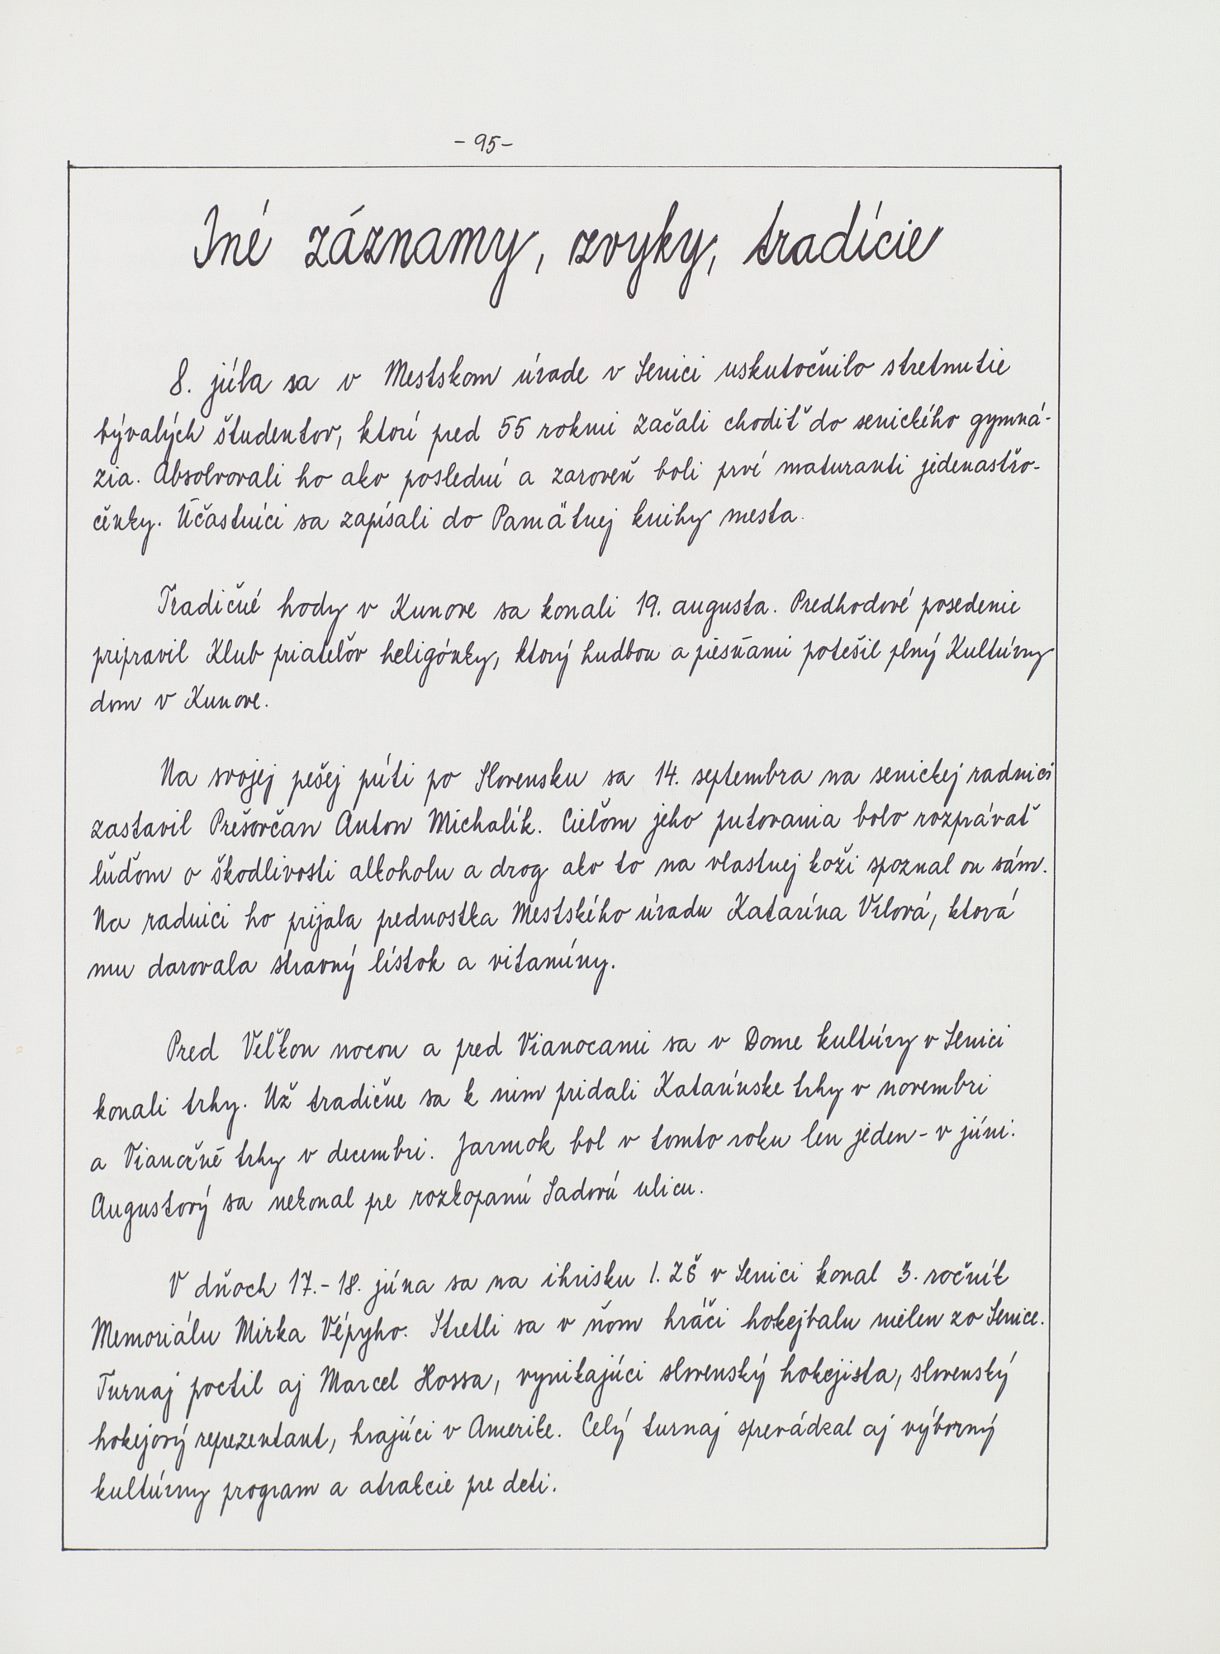 - 95 -
Iné záznamy, zvyky, tradície
8. júla sa v Mestskom úrade v Senici uskutočnilo stretnutie
bývalých študentov, ktorí pred 55 rokmi začali chodiť do senického gymná-
zia. Absolvovali ho ako poslední a zároveň boli prví maturanti jedenásťro-
čenky. Účastníci sa zapísali do Pamätnej knihy mesta.
Tradičné hody v Kunove sa konali 19. augusta. Predhodové posedenie
pripravil Klub priateľov heligónky, ktorý hudbou a piesňami potešil plný Kultúrny
dom v Kunove.
Na svojej pešej púti po Slovensku sa 14. septembra na senickej radnici
zastavil Prešovčan Anton Michalík. Cieľom jeho putovania bolo rozprávať
ľuďom o škodlivosti alkoholu a drog ako to na vlastnej koži spoznal on sám.
Na radnici ho prijala prednostka Mestského úradu Katarína Vrlová, ktorá
mu darovala stravný lístok a vitamíny.
Pred Veľkou nocou a pred Vianocami sa v Dome kultúry v Senici
konali trhy. Už tradične sa k nim pridali Katarínske trhy v novembri
a Vianočné trhy v decembri. Jarmok bol v tomto roku len jeden - v júni.
Augustový sa nekonal pre rozkopanú Sadovú ulicu.
V dňoch 17. - 18. júna sa na ihrisku 1. ZŠ v Senici konal 3. ročník
Memoriálu Mirka Vépyho. Stretli sa v ňom hráči hokejbalu nielen zo Senice.
Turnaj poctil aj Marcel Hossa, vynikajúci slovenský hokejista, slovenský
hokejový reprezentant, hrajúci v Amerike. Celý turnaj sprevádzal aj výborný
kultúrny program a atrakcie pre deti.